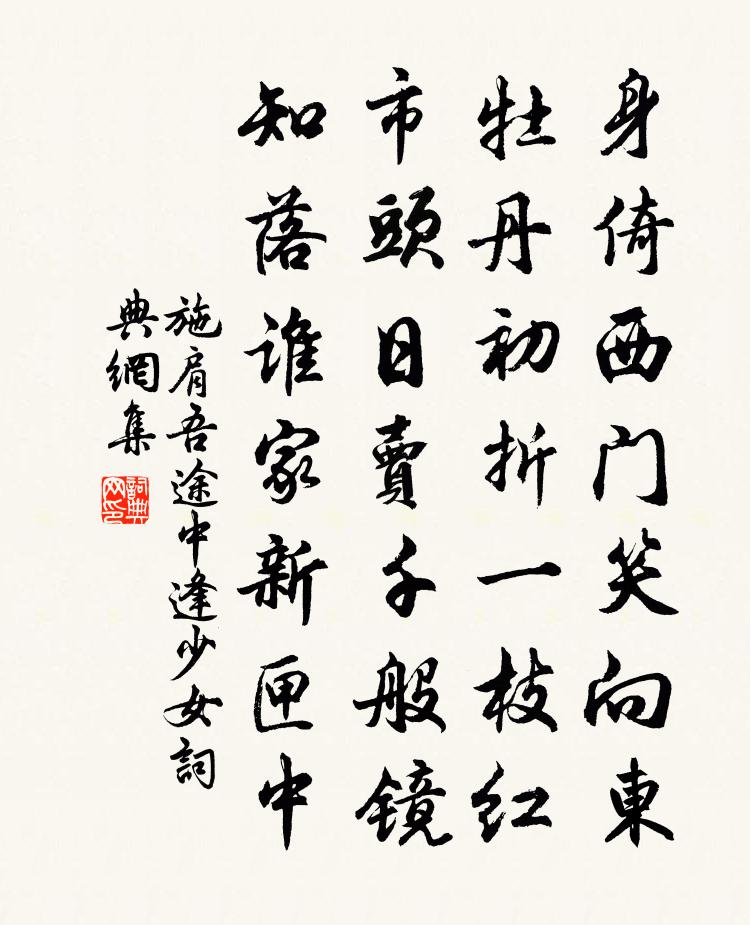 身倚西门笑向東
牡丹初折一枝红
市頭日賣千般镜
知落谁家新匣中
施肩吾途中逢少女詞
典網集
詞典网印